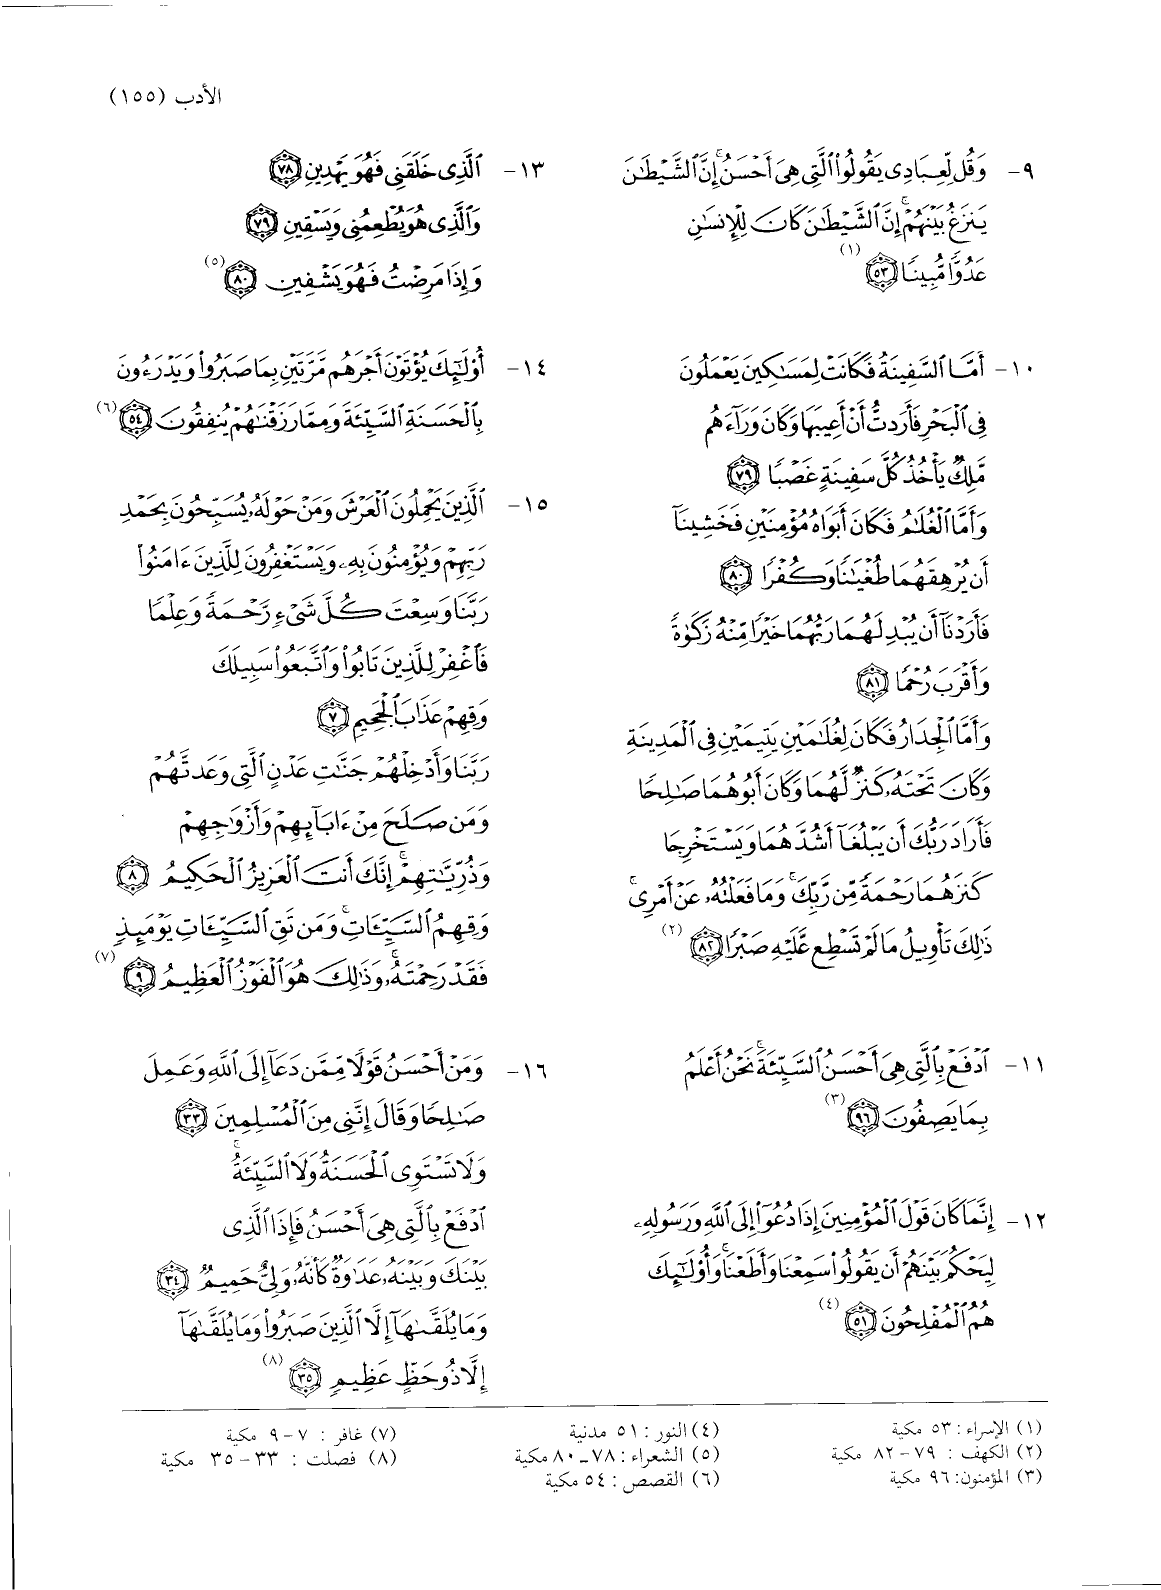 الأدب (١٥٥)
٩- وَقُل لِّعِبَادِى يَقُولُوا۟ ٱلَّتِى هِىَ أَحْسَنُ ۚ إِنَّ ٱلشَّيْطَـٰنَ
يَنزَغُ بَيْنَهُمْ ۚ إِنَّ ٱلشَّيْطَـٰنَ كَانَ لِلْإِنسَـٰنِ
عَدُوًّا مُّبِينًا ٥٣ (١)
١٠- أَمَّا ٱلسَّفِينَةُ فَكَانَتْ لِمَسَـٰكِينَ يَعْمَلُونَ
فِى ٱلْبَحْرِ فَأَرَدتُّ أَنْ أَعِيبَهَا وَكَانَ وَرَآءَهُم
مَّلِكٌ يَأْخُذُ كُلَّ سَفِينَةٍ غَصْبًا ٧٩
وَأَمَّا ٱلْغُلَـٰمُ فَكَانَ أَبَوَاهُ مُؤْمِنَيْنِ فَخَشِينَآ
أَن يُرْهِقَهُمَا طُغْيَـٰنًا وَكُفْرًا ٨٠
فَأَرَدْنَآ أَن يُبْدِلَهُمَا رَبُّهُمَا خَيْرًا مِّنْهُ زَكَوٰةً
وَأَقْرَبَ رُحْمًا ٨١
وَأَمَّا ٱلْجِدَارُ فَكَانَ لِغُلَـٰمَيْنِ يَتِيمَيْنِ فِى ٱلْمَدِينَةِ
وَكَانَ تَحْتَهُۥ كَنزٌ لَّهُمَا وَكَانَ أَبُوهُمَا صَـٰلِحًا
فَأَرَادَ رَبُّكَ أَن يَبْلُغَآ أَشُدَّهُمَا وَيَسْتَخْرِجَا
كَنزَهُمَا رَحْمَةً مِّن رَّبِّكَ ۚ وَمَا فَعَلْتُهُۥ عَنْ أَمْرِى ۚ
ذَٰلِكَ تَأْوِيلُ مَا لَمْ تَسْطِع عَّلَيْهِ صَبْرًا ٨٢ (٢)
١١- ٱدْفَعْ بِٱلَّتِى هِىَ أَحْسَنُ ٱلسَّيِّئَةَ ۚ نَحْنُ أَعْلَمُ
بِمَا يَصِفُونَ ٩٦ (٣)
١٢- إِنَّمَا كَانَ قَوْلَ ٱلْمُؤْمِنِينَ إِذَا دُعُوٓا۟ إِلَى ٱللَّهِ وَرَسُولِهِۦ
لِيَحْكُمَ بَيْنَهُمْ أَن يَقُولُوا۟ سَمِعْنَا وَأَطَعْنَا ۚ وَأُو۟لَـٰٓئِكَ
هُمُ ٱلْمُفْلِحُونَ ٥١ (٤)
١٣- ٱلَّذِى خَلَقَنِى فَهُوَ يَهْدِينِ ٧٨
وَٱلَّذِى هُوَ يُطْعِمُنِى وَيَسْقِينِ ٧٩
وَإِذَا مَرِضْتُ فَهُوَ يَشْفِينِ ٨٠ (٥)
١٤- أُو۟لَـٰٓئِكَ يُؤْتَوْنَ أَجْرَهُم مَّرَّتَيْنِ بِمَا صَبَرُوا۟ وَيَدْرَءُونَ
بِٱلْحَسَنَةِ ٱلسَّيِّئَةَ وَمِمَّا رَزَقْنَـٰهُمْ يُنفِقُونَ ٥٤ (٦)
١٥- ٱلَّذِينَ يَحْمِلُونَ ٱلْعَرْشَ وَمَنْ حَوْلَهُۥ يُسَبِّحُونَ بِحَمْدِ
رَبِّهِمْ وَيُؤْمِنُونَ بِهِۦ وَيَسْتَغْفِرُونَ لِلَّذِينَ ءَامَنُوا۟
رَبَّنَا وَسِعْتَ كُلَّ شَىْءٍ رَّحْمَةً وَعِلْمًا
فَٱغْفِرْ لِلَّذِينَ تَابُوا۟ وَٱتَّبَعُوا۟ سَبِيلَكَ
وَقِهِمْ عَذَابَ ٱلْجَحِيمِ ٧
رَبَّنَا وَأَدْخِلْهُمْ جَنَّـٰتِ عَدْنٍ ٱلَّتِى وَعَدتَّهُمْ
وَمَن صَلَحَ مِنْ ءَابَآئِهِمْ وَأَزْوَٰجِهِمْ
وَذُرِّيَّـٰتِهِمْ ۚ إِنَّكَ أَنتَ ٱلْعَزِيزُ ٱلْحَكِيمُ ٨
وَقِهِمُ ٱلسَّيِّـَٔاتِ ۚ وَمَن تَقِ ٱلسَّيِّـَٔاتِ يَوْمَئِذٍ
فَقَدْ رَحِمْتَهُۥ ۚ وَذَٰلِكَ هُوَ ٱلْفَوْزُ ٱلْعَظِيمُ ٩ (٧)
١٦- وَمَنْ أَحْسَنُ قَوْلًا مِّمَّن دَعَآ إِلَى ٱللَّهِ وَعَمِلَ
صَـٰلِحًا وَقَالَ إِنَّنِى مِنَ ٱلْمُسْلِمِينَ ٣٣
وَلَا تَسْتَوِى ٱلْحَسَنَةُ وَلَا ٱلسَّيِّئَةُ ۚ
ٱدْفَعْ بِٱلَّتِى هِىَ أَحْسَنُ فَإِذَا ٱلَّذِى
بَيْنَكَ وَبَيْنَهُۥ عَدَٰوَةٌ كَأَنَّهُۥ وَلِىٌّ حَمِيمٌ ٣٤
وَمَا يُلَقَّىٰهَآ إِلَّا ٱلَّذِينَ صَبَرُوا۟ وَمَا يُلَقَّىٰهَآ
إِلَّا ذُو حَظٍّ عَظِيمٍ ٣٥ (٨)
(١) الإسراء : ٥٣ مكية
(٢) الكهف : ٧٩-٨٢ مكية
(٣) المؤمنون: ٩٦ مكية
(٤) النور : ٥١ مدنية
(٥) الشعراء : ٧٨-٨٠ مكية
(٦) القصص : ٥٤ مكية
(٧) غافر : ٧-٩ مكية
(٨) فصلت : ٣٣-٣٥ مكية